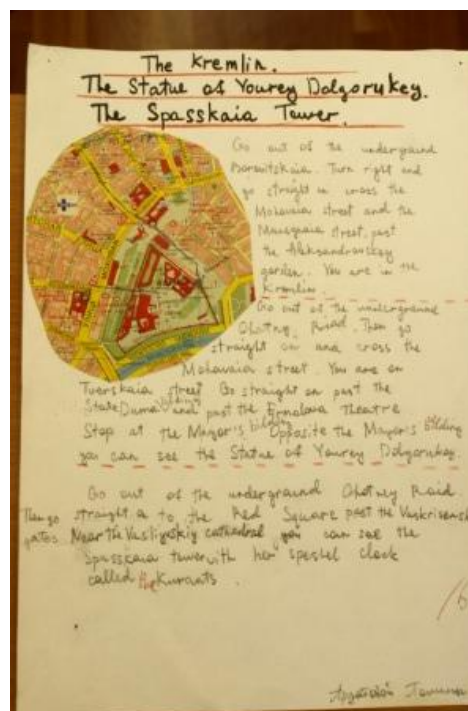 The Kremlin.
The Statue of Yourey Dolgorukey.
The Spasskaia Tower.
Go out of the underground
Borovitskaia. Turn right and
go straight on cross the
Mohavaia street and the
street, past
the Aleksandrovskey
garden. You are in the
Kremlin.
Go out of the underground
Ohotney Riad. Then go
straight on and cross the
Mohavaia street. You are on
Tverskaia street Go straight on past the
State Duma bilding and past the Ermolova Theatre
Stop at the Mayor's bilding Opposite the Mayor's bilding
you can see the Statue of Yourey Dolgorukey.
Go out of the underground Ohotney Riad.
Then go straight to the Red Square past the Vaskrisensk
gates. Near the Vasilyevskiy cathedral you can see the
Spasskaia tower with her speshel clock
called the Kurants.